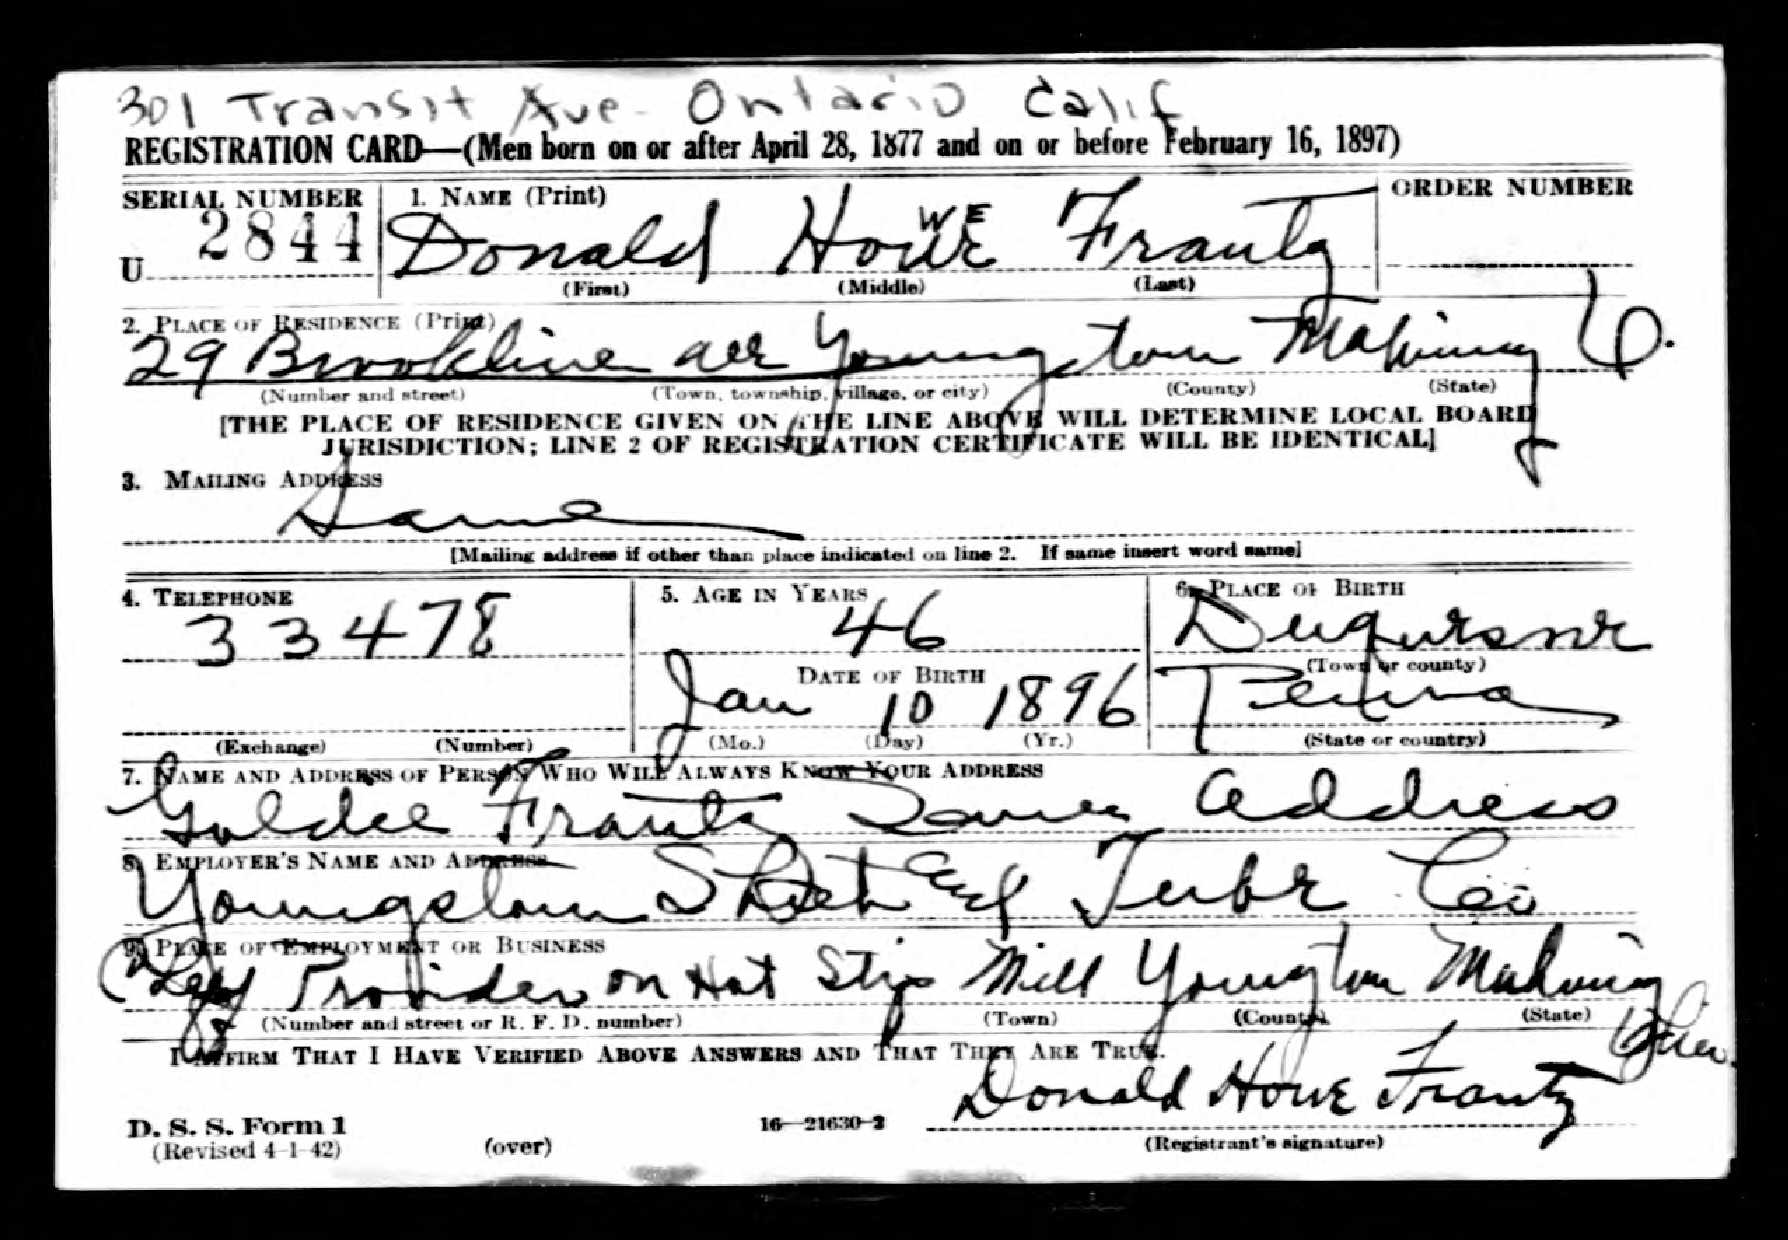 301 Transit Ave - Ontario Calif
REGISTRATION CARD—(Men born on or after April 28, 1877 and on or before February 16, 1897)
SERIAL NUMBER 1. NAME (Print) ORDER NUMBER
U 2844 Donald Howe WE Frantz
(First) (Middle) (Last)
2. PLACE OF RESIDENCE (Print)
29 Brookline ave Youngstown Mahoning O.
(Number and street) (Town, township, village, or city) (County) (State)
[THE PLACE OF RESIDENCE GIVEN ON THE LINE ABOVE WILL DETERMINE LOCAL BOARD
JURISDICTION; LINE 2 OF REGISTRATION CERTIFICATE WILL BE IDENTICAL]
3. MAILING ADDRESS
Same
[Mailing address if other than place indicated on line 2. If same insert word same]
4. TELEPHONE 5. AGE IN YEARS 6. PLACE OF BIRTH
33478 46 Duquesne
(Town or county)
DATE OF BIRTH
Jan 10 1896 Penna
(Exchange) (Number) (Mo.) (Day) (Yr.) (State or country)
7. NAME AND ADDRESS OF PERSON WHO WILL ALWAYS KNOW YOUR ADDRESS
Goldie Frantz Same address
8. EMPLOYER'S NAME AND ADDRESS
Youngstown Sheet and Tube Co
9. PLACE OF EMPLOYMENT OR BUSINESS
on Hot Strip Mill Youngstown Mahoning
(Number and street or R. F. D. number) (Town) (County) (State)
Ohio
I AFFIRM THAT I HAVE VERIFIED ABOVE ANSWERS AND THAT THEY ARE TRUE.
Donald Howe Frantz
D. S. S. Form 1
(Revised 4-1-42) (over) 16—21630-2 (Registrant's signature)